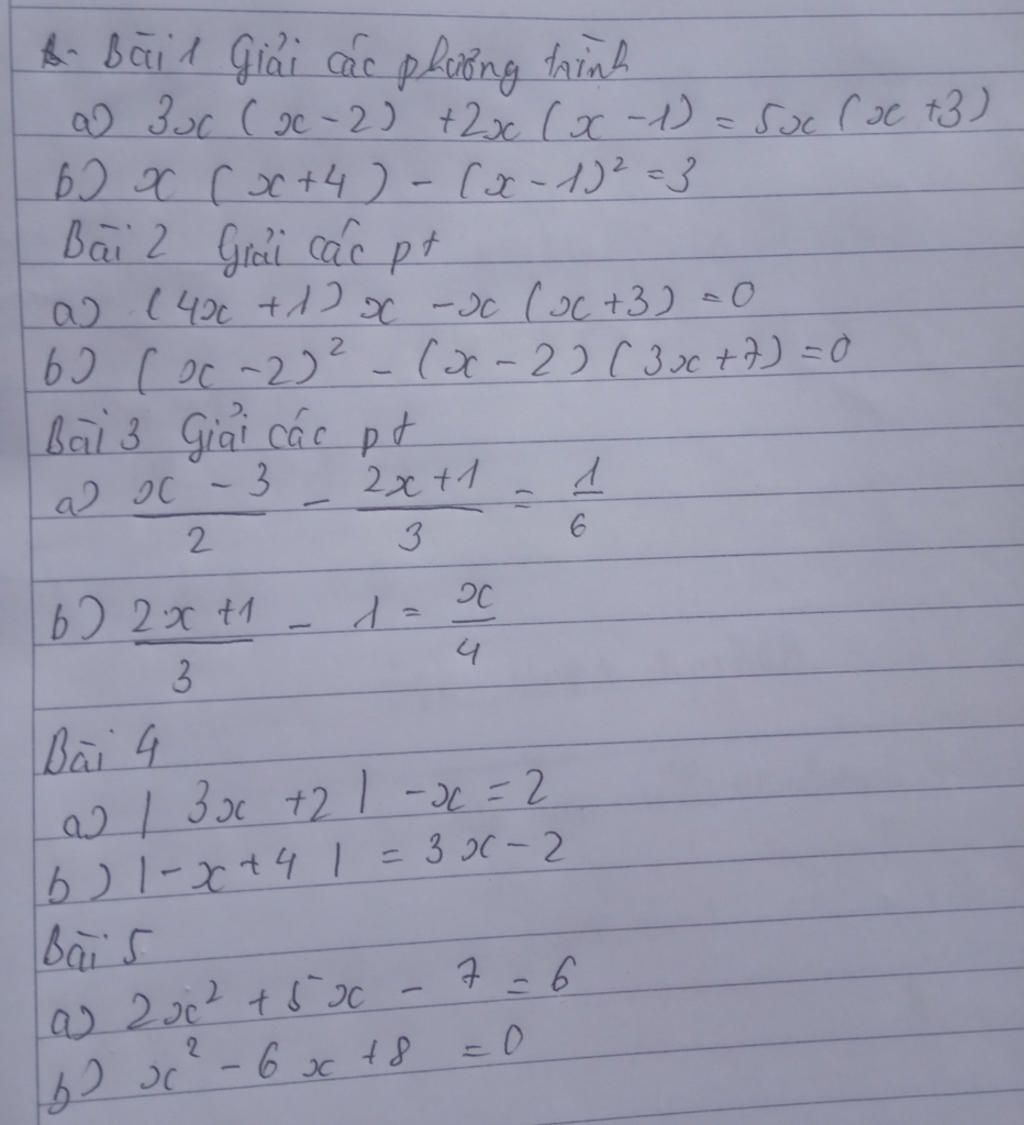 Bài 1 Giải các phương trình
a) 3x (x - 2) + 2x (x - 1) = 5x (x + 3)
b) x (x + 4) - (x - 1)² = 3
Bài 2 Giải các pt
a) (4x + 1) x - x (x + 3) = 0
b) (x - 2)² - (x - 2) (3x + 7) = 0
Bài 3 Giải các pt
a) \frac{x - 3}{2} - \frac{2x + 1}{3} = \frac{1}{6}
b) \frac{2x + 1}{3} - 1 = \frac{x}{4}
Bài 4
a) | 3x + 2 | - x = 2
b) | - x + 4 | = 3x - 2
Bài 5
a) 2x² + 5x - 7 = 6
b) x² - 6x + 8 = 0